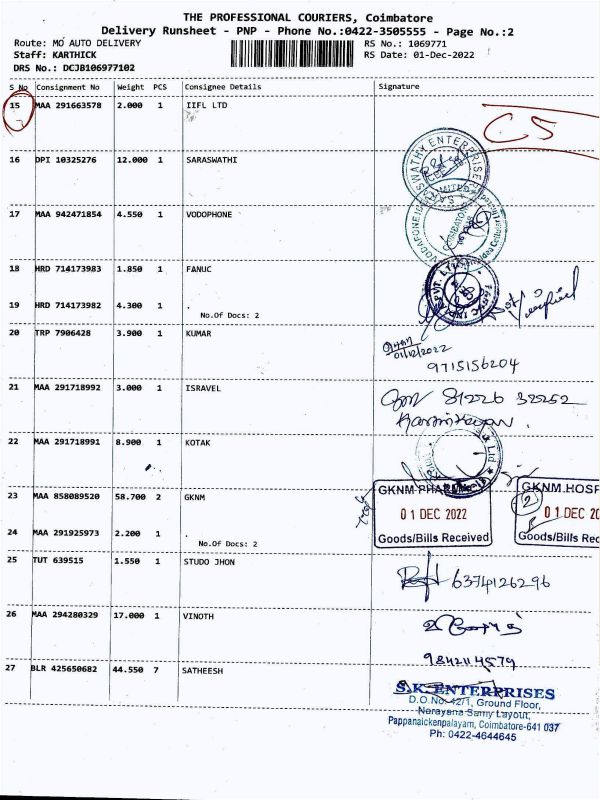 THE PROFESSIONAL COURIERS, Coimbatore
Delivery Runsheet - PNP - Phone No.:0422-3505555 - Page No.:2
Route: MO AUTO DELIVERY
RS No.: 1069771
Staff: KARTHICK
RS Date: 01-Dec-2022
DRS No.: DCJB106977102
S No Consignment No Weight PCS Consignee Details Signature
15 MAA 291663578 2.000 1 IIFL LTD
CS
16 DPI 10325276 12.000 1 SARASWATHI
17 MAA 942471854 4.550 1 VODOPHONE
18 HRD 714173983 1.850 1 FANUC
19 HRD 714173982 4.300 1 .
No.Of Docs: 2
20 TRP 7906428 3.900 1 KUMAR
01/12/2022
9715156204
21 MAA 291718992 3.000 1 ISRAVEL
81226 32252
22 MAA 291718991 8.900 1 KOTAK
23 MAA 858089520 58.700 2 GKNM
GKNM PHARMA
01 DEC 2022
Goods/Bills Received
GKNM HOSP
2
01 DEC 20
Goods/Bills Rec
24 MAA 291925973 2.200 1 .
No.Of Docs: 2
25 TUT 639515 1.550 1 STUDO JHON
6374126296
26 MAA 294280329 17.000 1 VINOTH
9842114579
27 BLR 425650682 44.550 7 SATHEESH
S.K. ENTERPRISES
D.O.No. 42/1, Ground Floor,
Narayana Samy Layout,
Pappanaickenpalayam, Coimbatore-641 037
Ph: 0422-4644645